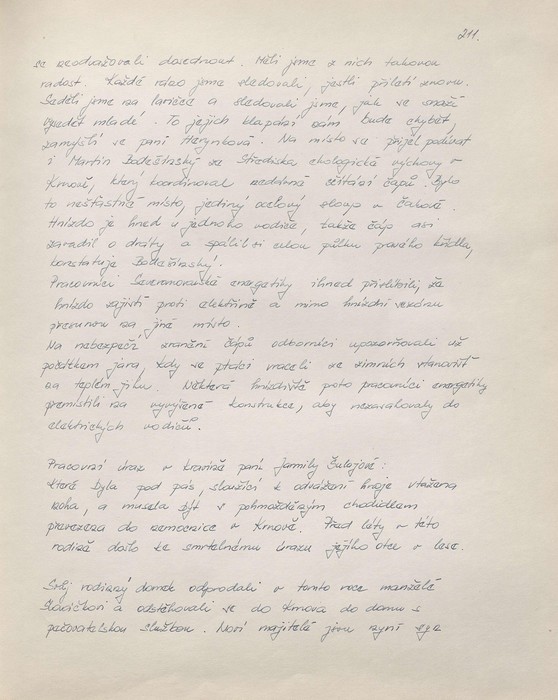 211.
se neodvažovali dosednout. Měli jsme z nich takovou
radost. Každé ráno jsme sledovali, jestli přiletí znovu.
Seděli jsme na lavičce a sledovali jsme, jak se snaží
vypeđet mladé. To jejich klapání nám bude chybět,
zamýšlí se paní Herynková. Na místo se přijel podívat
i Martin Bodešínský ze Střediska ekologické výchovy v
Krnově, který koordinoval nedávné sčítání čápů. Bylo
to nešťastné místo, jediný ocelový sloup v Čakově.
Hnízdo je hned u jednoho vodiče, takže čáp asi
zavadil o dráty a spálil si celou půlku pravého křídla,
konstatuje Bodešínský.
Pracovníci Severomoravské energetiky ihned přislíbili, že
hnízdo zajistí proti elektřině a mimo hnízdní sezónu
přesunou na jiné místo.
Na nebezpečí zranění čápů odborníci upozorňovali už
počátkem jara, kdy se ptáci vraceli ze zimních stanovišť
na teplém jihu. Některá hnízdiště poto pracovníci energetiky
přemístili na vyvýšené konstrukce, aby nezasahovaly do
elektrických vodičů.
Pracovní úraz v kravíně paní Jarmily Šulajové:
které byla pod pás, sloužící k odvážení hnoje vtažena
noha, a musela být s pohmožděným chodidlem
převezena do nemocnice v Krnově. Před léty v této
rodině došlo ke smrtelnému úrazu jejího otce v lese.
Svůj rodinný domek odprodali v tomto roce manželé
Slavíčkovi a odstěhovali se do Krnova do domu s
pečovatelskou službou. Noví majitelé jsou nyní